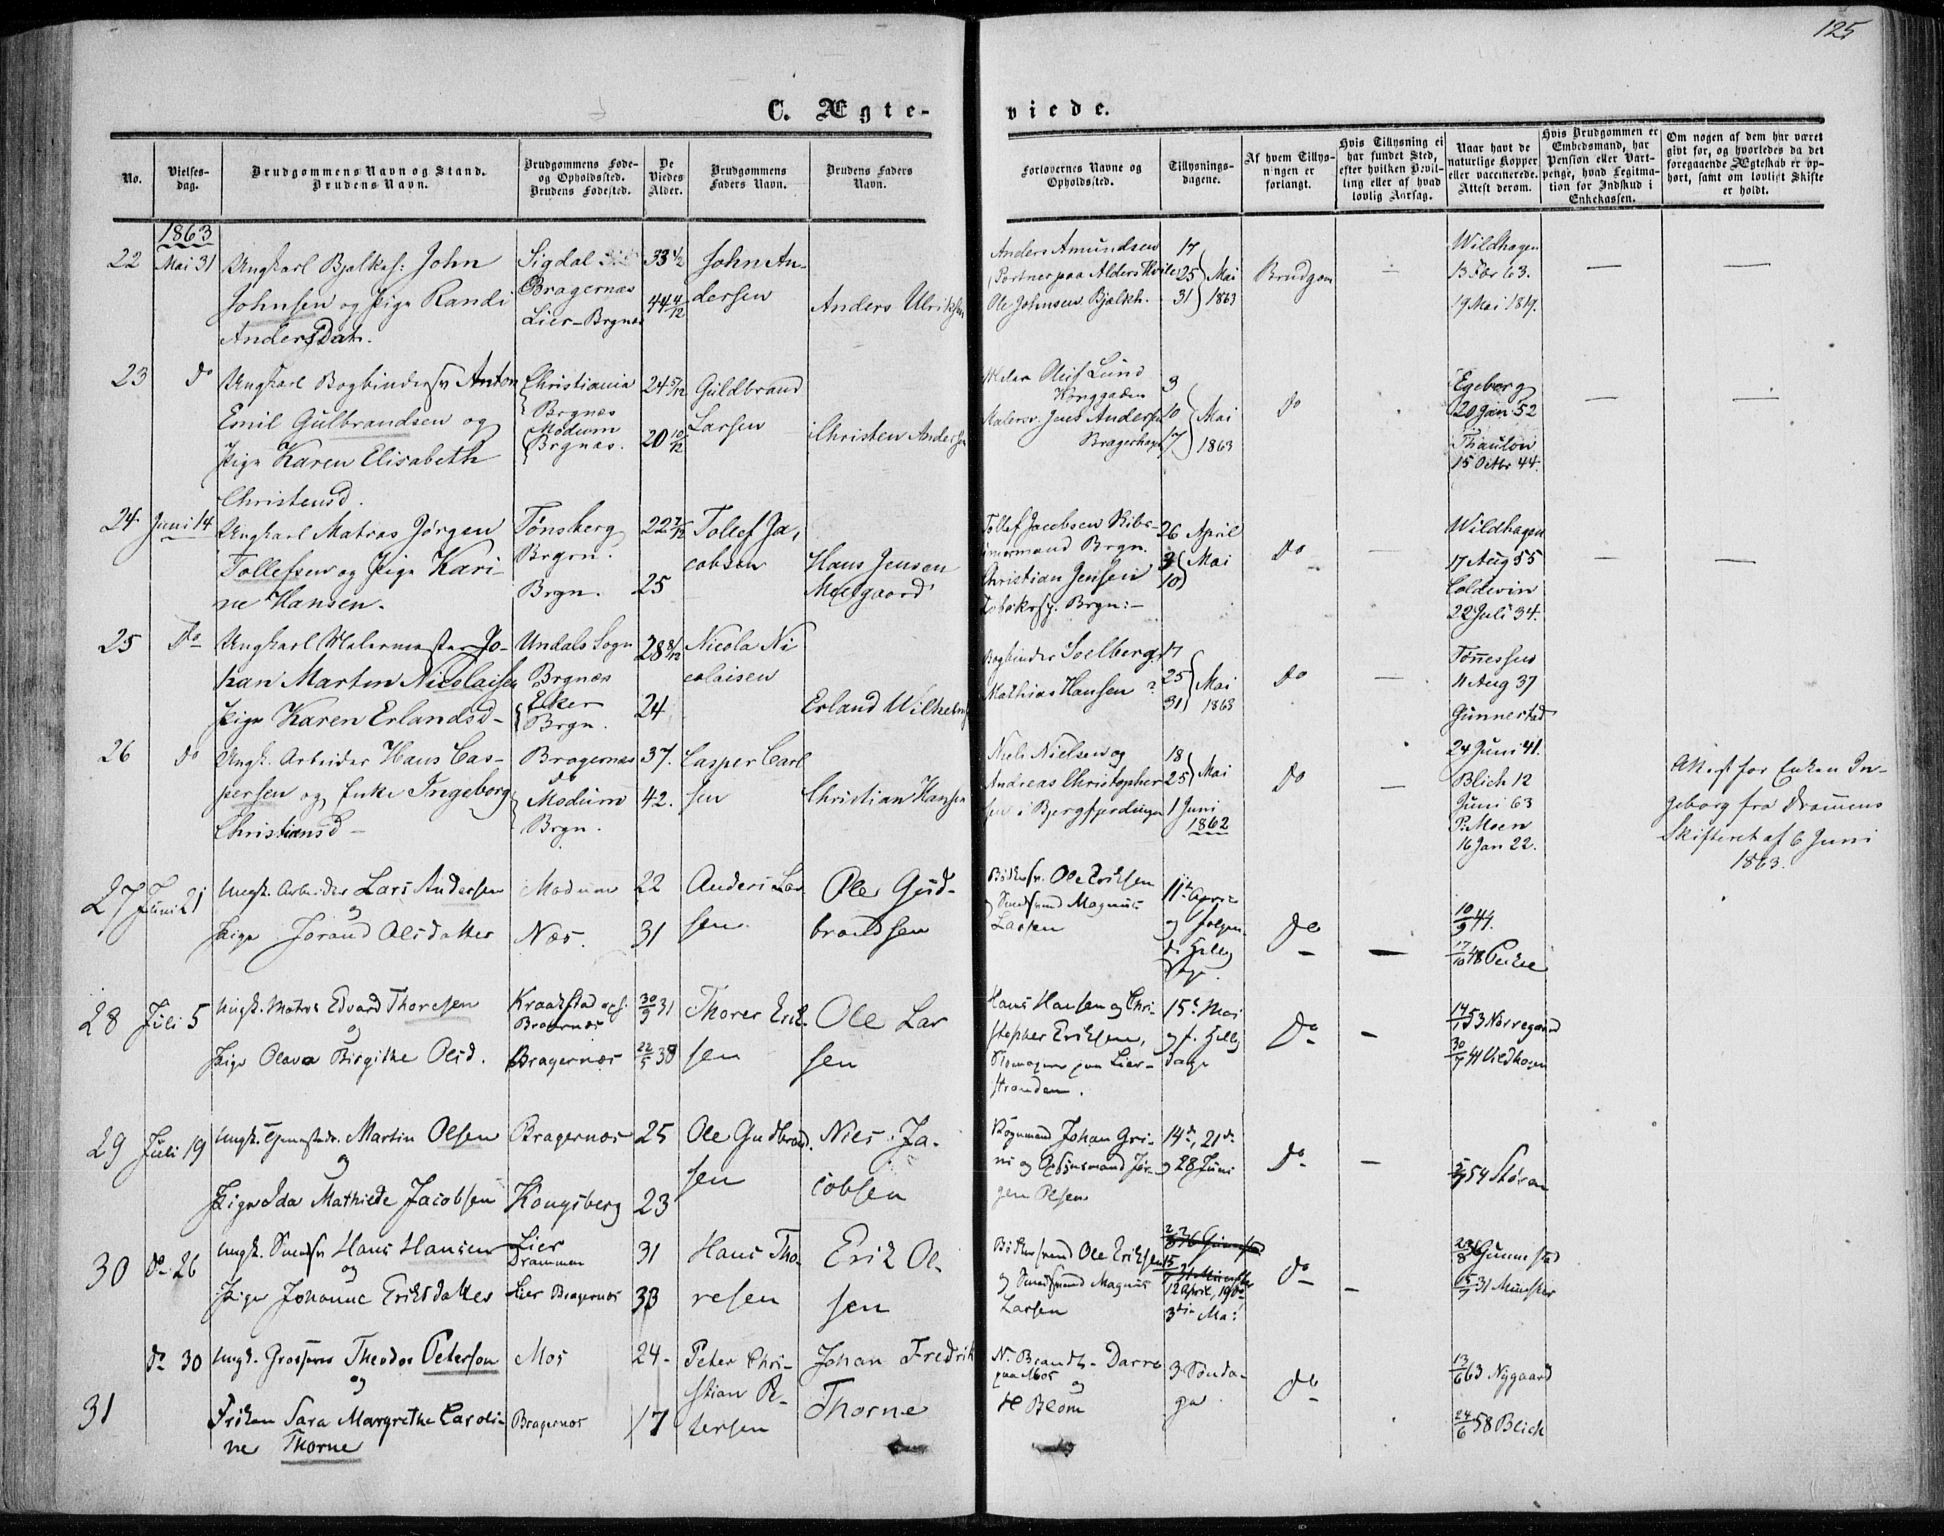 125
C. Ægte-
viede.
No.
Vielses-
dag.
Brudgommens Navn og Stand.
Brudens Navn.
Brudgommens Føde-
og Opholdssted.
Brudens Fødested.
De
Viedes
Alder.
Brudgommens
Faders Navn.
Brudens Faders
Navn.
Forlovernes Navne og
Opholdssted.
Tillysnings-
dagene.
Af hvem Tillys-
ningen er
forlangt.
Hvis Tillysning ei
har fundet Sted,
efter hvilken Bevil-
ling eller af hvad
lovlig Aarsag.
Naar havt de
naturlige Kopper
eller vaccinerede.
Attest derom.
Hvis Brudgommen er
Embedsmand, har
Pension eller Vart-
penge, hvad Legitima-
tion for Indskud i
Enkekassen.
Om nogen af dem har været
gift før, og hvorledes da det
foregaaende Ægteskab er op-
hørt, samt om lovligt Skifte
er holdt.
1863
22 Mai 31 Ungkarl Bjelkeh: John
Johnsen og Pige Randi
Andersdat.
Sigdal
Bragernæs
Lier-Brgnæs
33 1/2
44 4/12
John An-
dersen
Anders Ulriksen
Anders Amundsen
Portner paa Alders Hvile
Ole Johnsen Bjelkh.
17
25 Mai
31 1863
Brudgom
—
Wildhagen
13 Feb 63.
19 Mai 1819.
—
—
23 do Ungkarl Bogbindersv Anton
Emil Gulbrandsen og
Pige Karen Elisabeth
Christensd.
Christiania
Brgnæs
Modum
Brgnæs.
24 5/12
20 10/12
Guldbrand
Larsen
Christen Andersen
Oluf Lund
Konggaden
Malersv. Jens Andersen
Bragerhagn
3
10 Mai
17 1863
do
Egeberg
20 Jan 52
Thaulow
15 Octbr 44.
—
—
24 Juni 14 Ungkarl Matros Jørgen
Tollefsen og Pige Kari-
ne Hansen.
Tønsberg
Brgrn.
Brgn.
22 7/12
25
Tollef Ja-
cobsen
Hans Jensen
Meegaard
Tollef Jacobsen Skibs-
tømermand Brgn.
Christian Jensen
Tobaksf. Brgn:—
26 April
3 Mai
10
Do
—
Wildhagen
17 Aug 55
Coldevin
22 Juli 34.
—
—
25 Do Ungkarl Malermester Jo-
han Martin Nicolaisen
Pige Karen Erlandsd—
Undals Sogn
Brgnæs
Eker
Brgn.
28 8/12
24
Nicola Ni
colaisen
Erland Wilhelms
Bogbinder Soelberg
Mathias Hansen
17
25 Mai
31 1863
do
—
Tønessen
11 Aug 37
Gunnestad
24 Juni 41.
26 do Ungk. Arbeider Hans Cas-
persen og Enke Ingeborg
Christiansd—
Bragernæs
Modum
Brgn.
37.
42.
Casper Carl
sen
Christian Hansen
Niels Nielsen og
Andreas Christopher
sen i Bergfjerdingen
18
25 Mai
1 Juni
1862
do
—
Blich 12
Juni 63
P. Moen
16 Jan 22.
Attest for Enken In-
geborg fra Drammens
Skifteret af 6 Juni
1863.
27 Juni 21 Ungk. Arbeider Lars Andersen
og
Pige Jørand Olsdatter
Modum
Næs.
22
31
Anders Lar
sen.
Ole Gud-
brandsen
Bødkersv. Ole Eriksen
Smedsvend Magnus
Larsen
11te April
og følgen
de Hellig
dage.
do
—
10/9 44.
17/10 48
28 Juli 5 Ungk. Matros Edvard Thoresen
og
Pige Olava Birgithe Olsd.
Kraakstad
Bragernæs
Bragernæs
30/3 31
22/5 38
Thorer Erik-
sen
Ole Lar
sen
Hans Hansen og Chri-
stopher Eriksen,
paa Lier-
stranden.
15de Mai
og f. Hellig
dage
do
—
14/1 53 Nørregaard
30/7 41 Wildhagen
29 Juli 19 Ungk. Martin Olsen
og
Pige Ida Mathilde Jacobsen
Bragernæs
Kongsberg
25
23
Ole Gudbrand
sen
Niels Ja-
cobsen
Johan Gri-
ni og Jør-
gen Olsen
14de, 21de
og 28 Juni
do
—
5/9 54 Støren
30 do 26 Ungk. Smedsv Hans Hansen
og
Pige Johanne Eriksdatter
Lier
Drammen
Lier Bragernæs
31
33
Hans Tho-
resen
Erik Ol-
sen
Bødkersvend Ole Eriksen
og Smedsvend Magnus
Larsen
12 April, 19de
3die Mai
do
—
28/8 36 Gunnestad
15/7 31 Münster
31 do 30 Ungk. Grosserer Theodor Peterson
og
Frøken Sara Margrethe Caroli-
ne Thorne
Mos
Bragernæs
24-
17
Peter Chri-
stian Pe-
tersen
Johan Fredrik
Thorne
N. Brandt-Darre
paa Mos
og
H Blom
3 Sønda-
ge
do
13/6 63 Nygaard
24/6 58 Blich